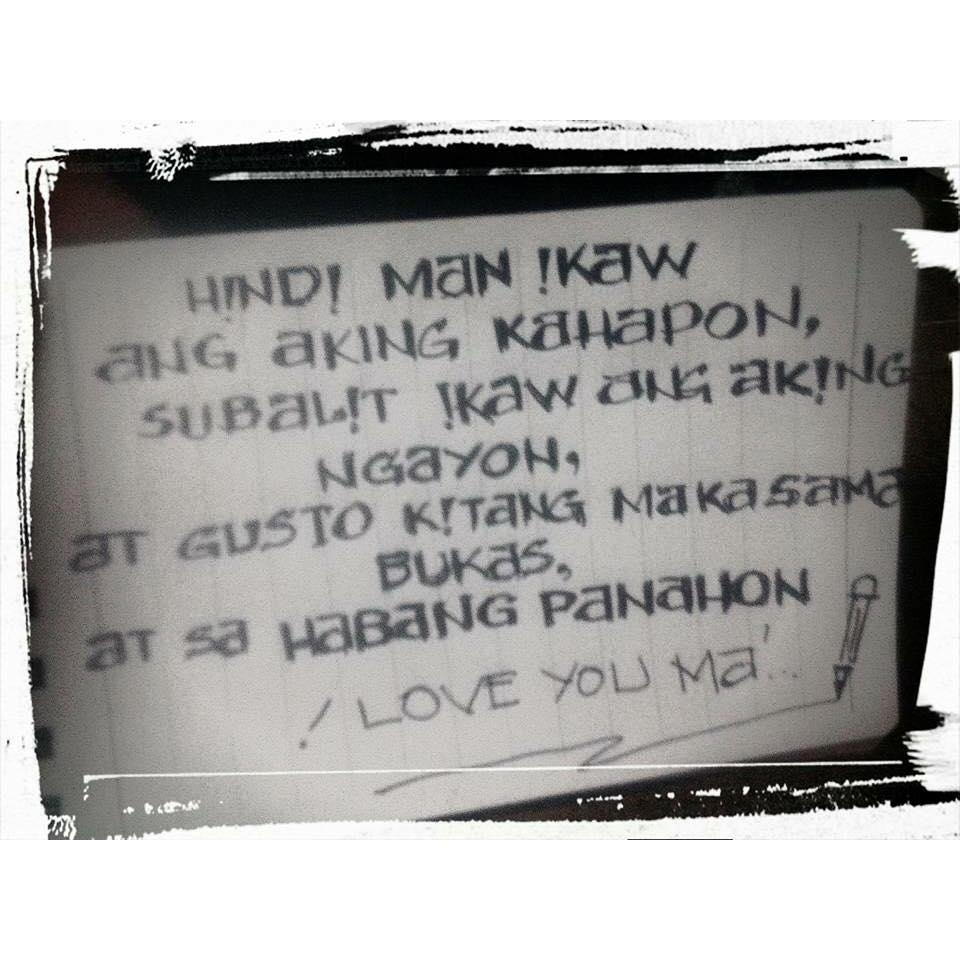 HINDI MaN IKaW
aNG aKING KaHaPON,
SUBaLIT IKaW aNG aKING
NGaYON,
aT GUSTO KITaNG MaKaSaMa
BUKaS,
aT Sa HaBaNG PaNaHON
I LOVE YOU Ma'...